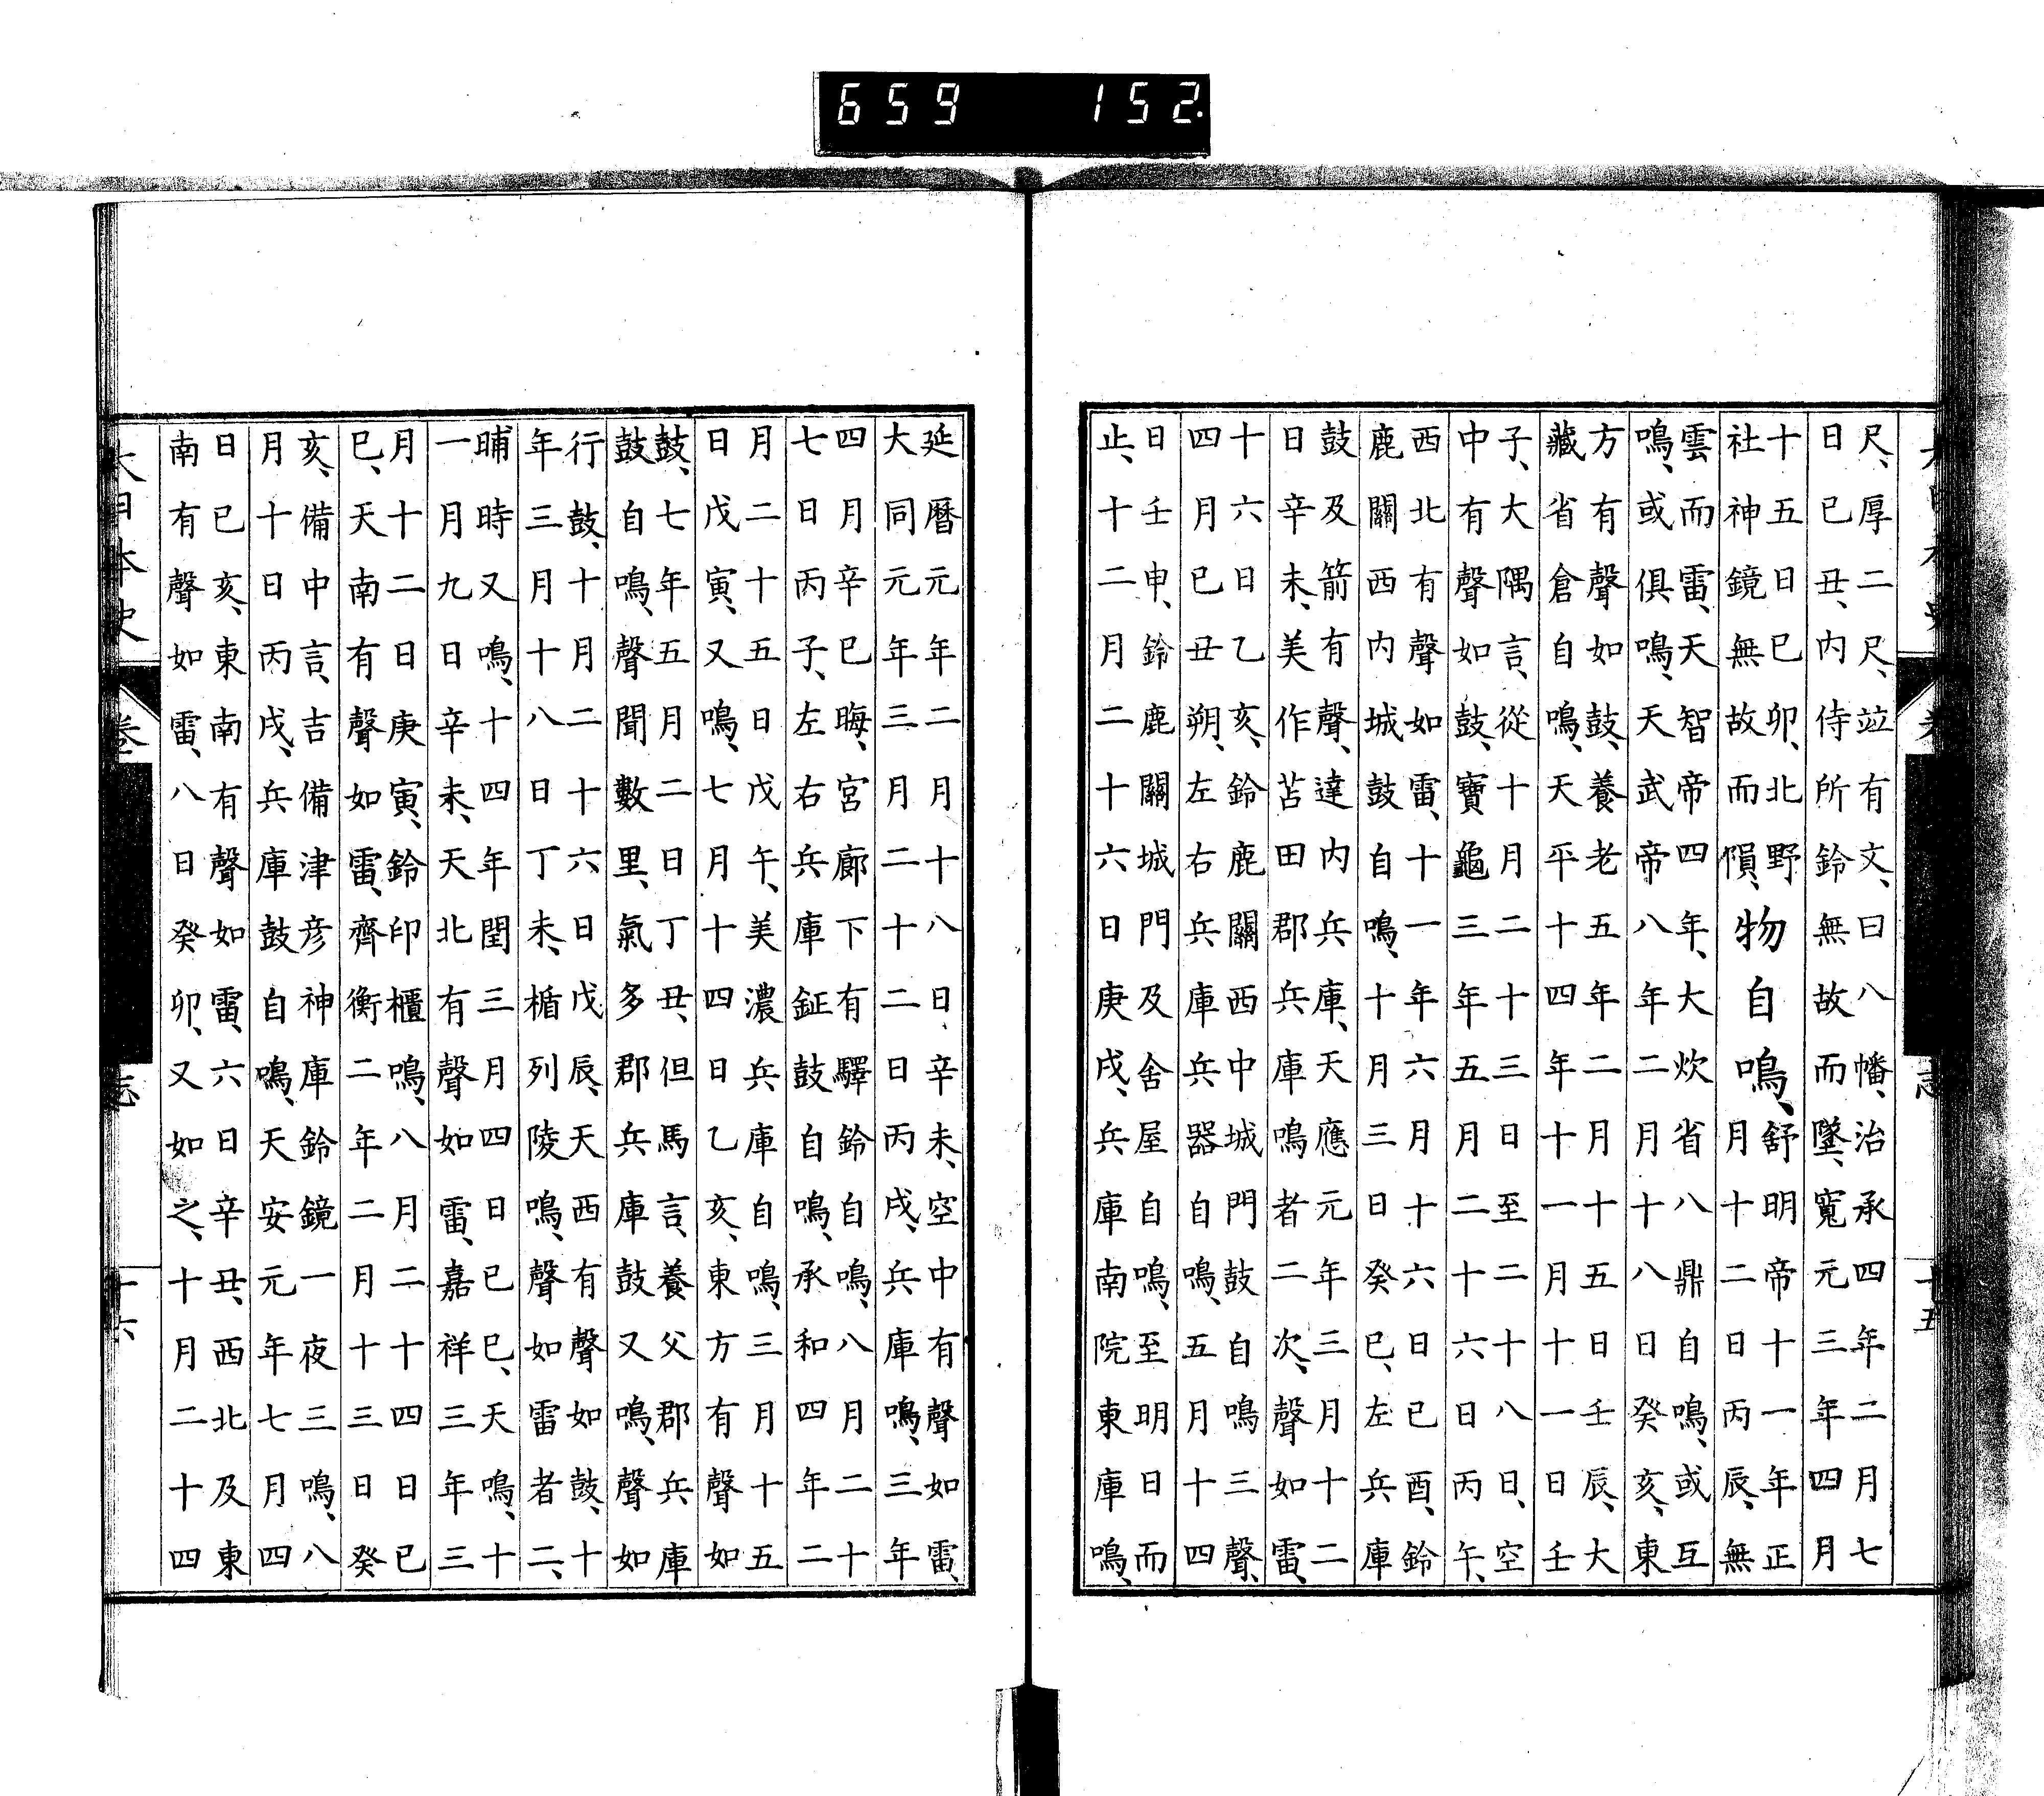 尺、厚二尺、竝有文、曰八幡、治承四年二月七
日己丑、内侍所鈴無故而墜、寛元三年四月
十五日己卯、北野
社神鏡無故而隕、
物自鳴、
舒明帝十一年正
月十二日丙辰、無
雲而雷、天智帝四年、大炊省八鼎自鳴、或互
鳴、或俱鳴、天武帝八年二月十八日癸亥、東
方有聲如鼓、養老五年二月十五日壬辰、大
藏省倉自鳴、天平十四年十一月十一日壬
子、大隅言、從十月二十三日至二十八日、空
中有聲如鼓、寶龜三年五月二十六日丙午、
西北有聲如雷、十一年六月十六日己酉、鈴
鹿關西内城鼓自鳴、十月三日癸巳、左兵庫
鼓及箭有聲、達内兵庫、天應元年三月十二
日辛未、美作苫田郡兵庫鳴者二次、聲如雷、
十六日乙亥、鈴鹿關西中城門鼓自鳴三聲、
四月己丑朔、左右兵庫兵器自鳴、五月十四
日壬申、鈴鹿關城門及舍屋自鳴、至明日而
止、十二月二十六日庚戌、兵庫南院東庫鳴、
延暦元年二月十八日辛未、空中有聲如雷、
大同元年三月二十二日丙戌、兵庫鳴、三年
四月辛巳晦、宮廊下有驛鈴自鳴、八月二十
七日丙子、左右兵庫鉦鼓自鳴、承和四年二
月二十五日戊午、美濃兵庫自鳴、三月十五
日戊寅、又鳴、七月十四日乙亥、東方有聲如
鼓、七年五月二日丁丑、但馬言、養父郡兵庫
鼓自鳴、聲聞數里、氣多郡兵庫鼓又鳴、聲如
行鼓、十月二十六日戊辰、天西有聲如鼓、十
年三月十八日丁未、楯列陵鳴、聲如雷者二、
晡時又鳴、十四年閏三月四日己巳、天鳴、十
一月九日辛未、天北有聲如雷、嘉祥三年三
月十二日庚寅、鈴印櫃鳴、八月二十四日己
巳、天南有聲如雷、齊衡二年二月十三日癸
亥、備中言、吉備津彦神庫鈴鏡一夜三鳴、八
月十日丙戌、兵庫鼓自鳴、天安元年七月四
日己亥、東南有聲如雷、六日辛丑、西北及東
南有聲如雷、八日癸卯、又如之、十月二十四
大日本史
卷
志
十六
659 152